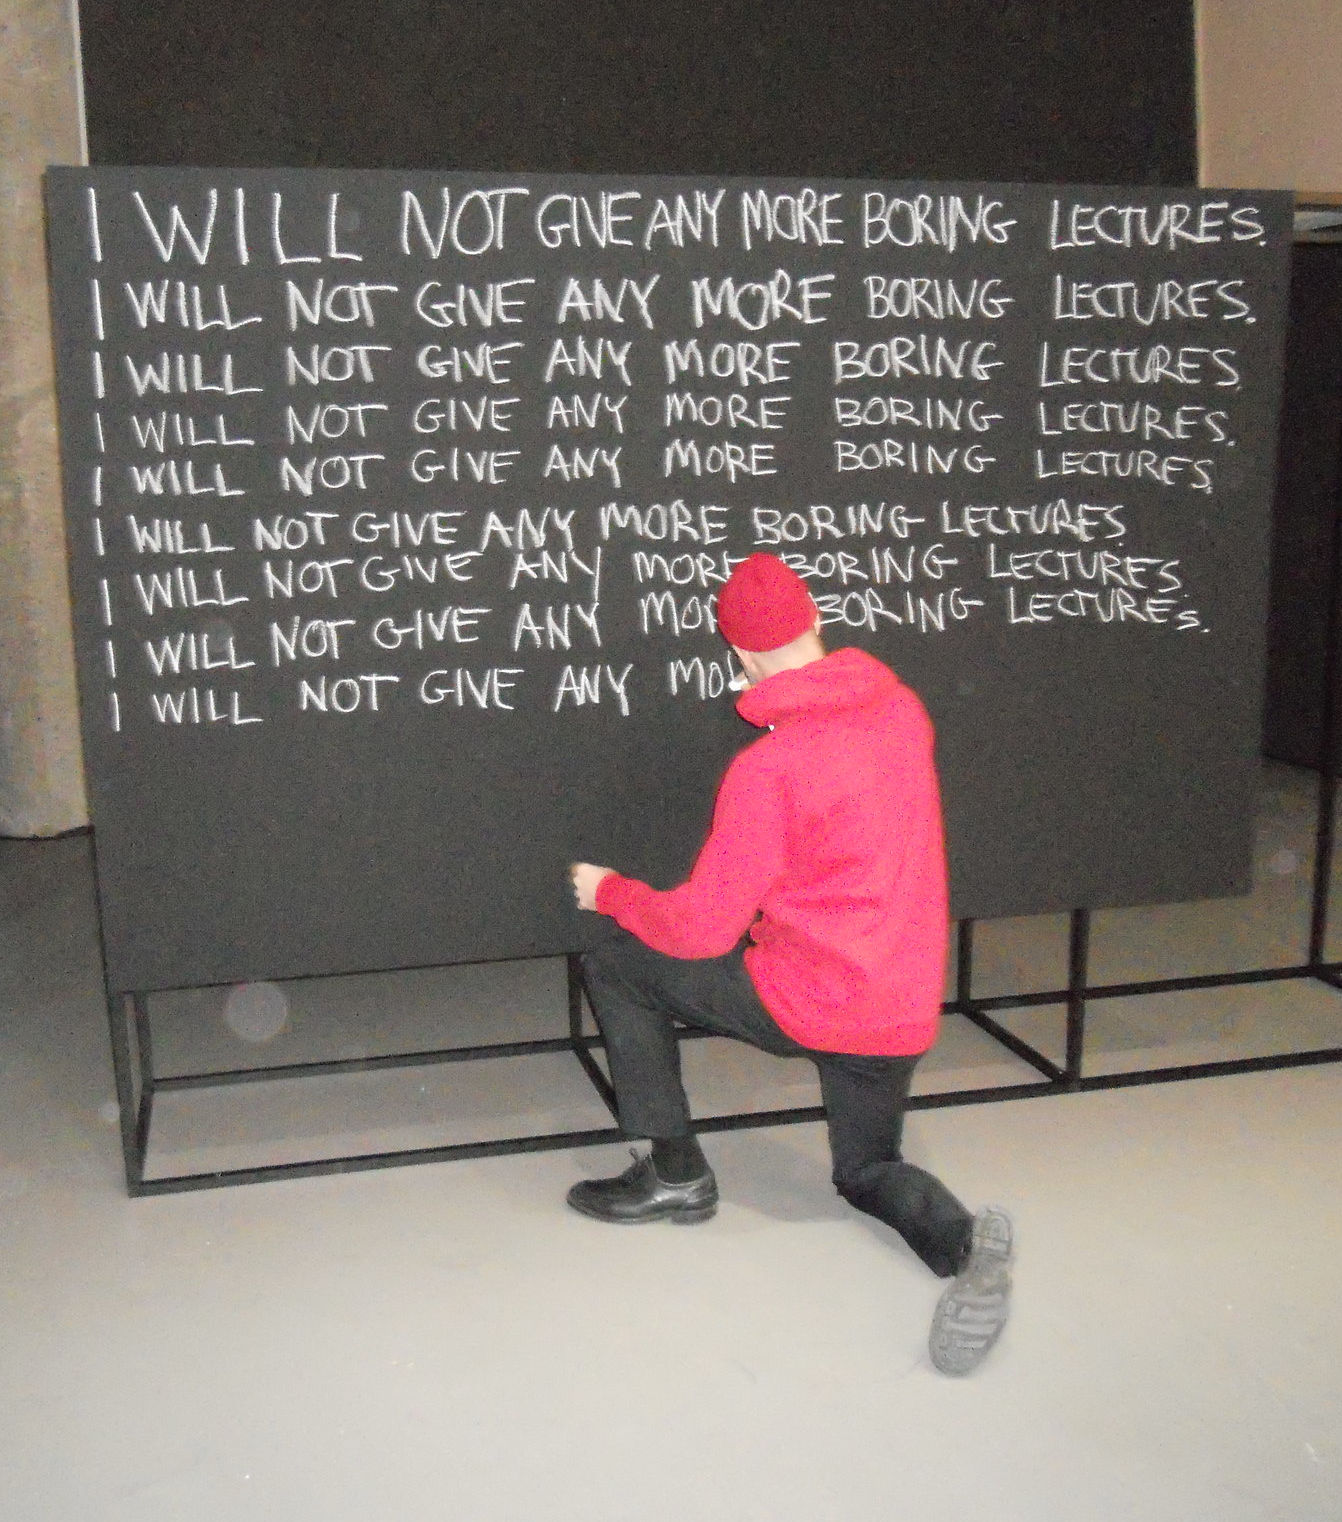 I WILL NOT GIVE ANY MORE BORING LECTURES.
I WILL NOT GIVE ANY MORE BORING LECTURES.
I WILL NOT GIVE ANY MORE BORING LECTURES.
I WILL NOT GIVE ANY MORE BORING LECTURES.
I WILL NOT GIVE ANY MORE BORING LECTURES.
I WILL NOT GIVE ANY MORE BORING LECTURES.
I WILL NOT GIVE ANY MORE BORING LECTURES.
I WILL NOT GIVE ANY MOR BORING LECTURES.
I WILL NOT GIVE ANY MO